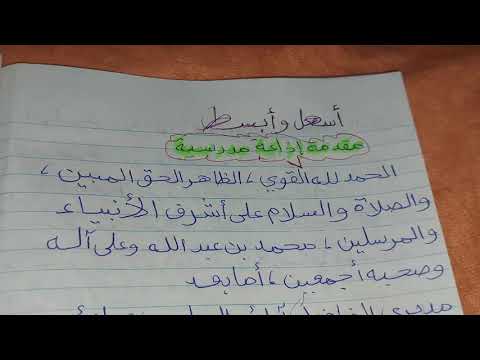 أسهل وأبسط
مقدمة إذاعة مدرسية
الحمد لله القوي، الظاهر الحق المبين،
والصلاة والسلام على أشرف الأنبياء
والمرسلين، محمد بن عبد الله وعلى آله
وصحبه أجمعين، أما بعد